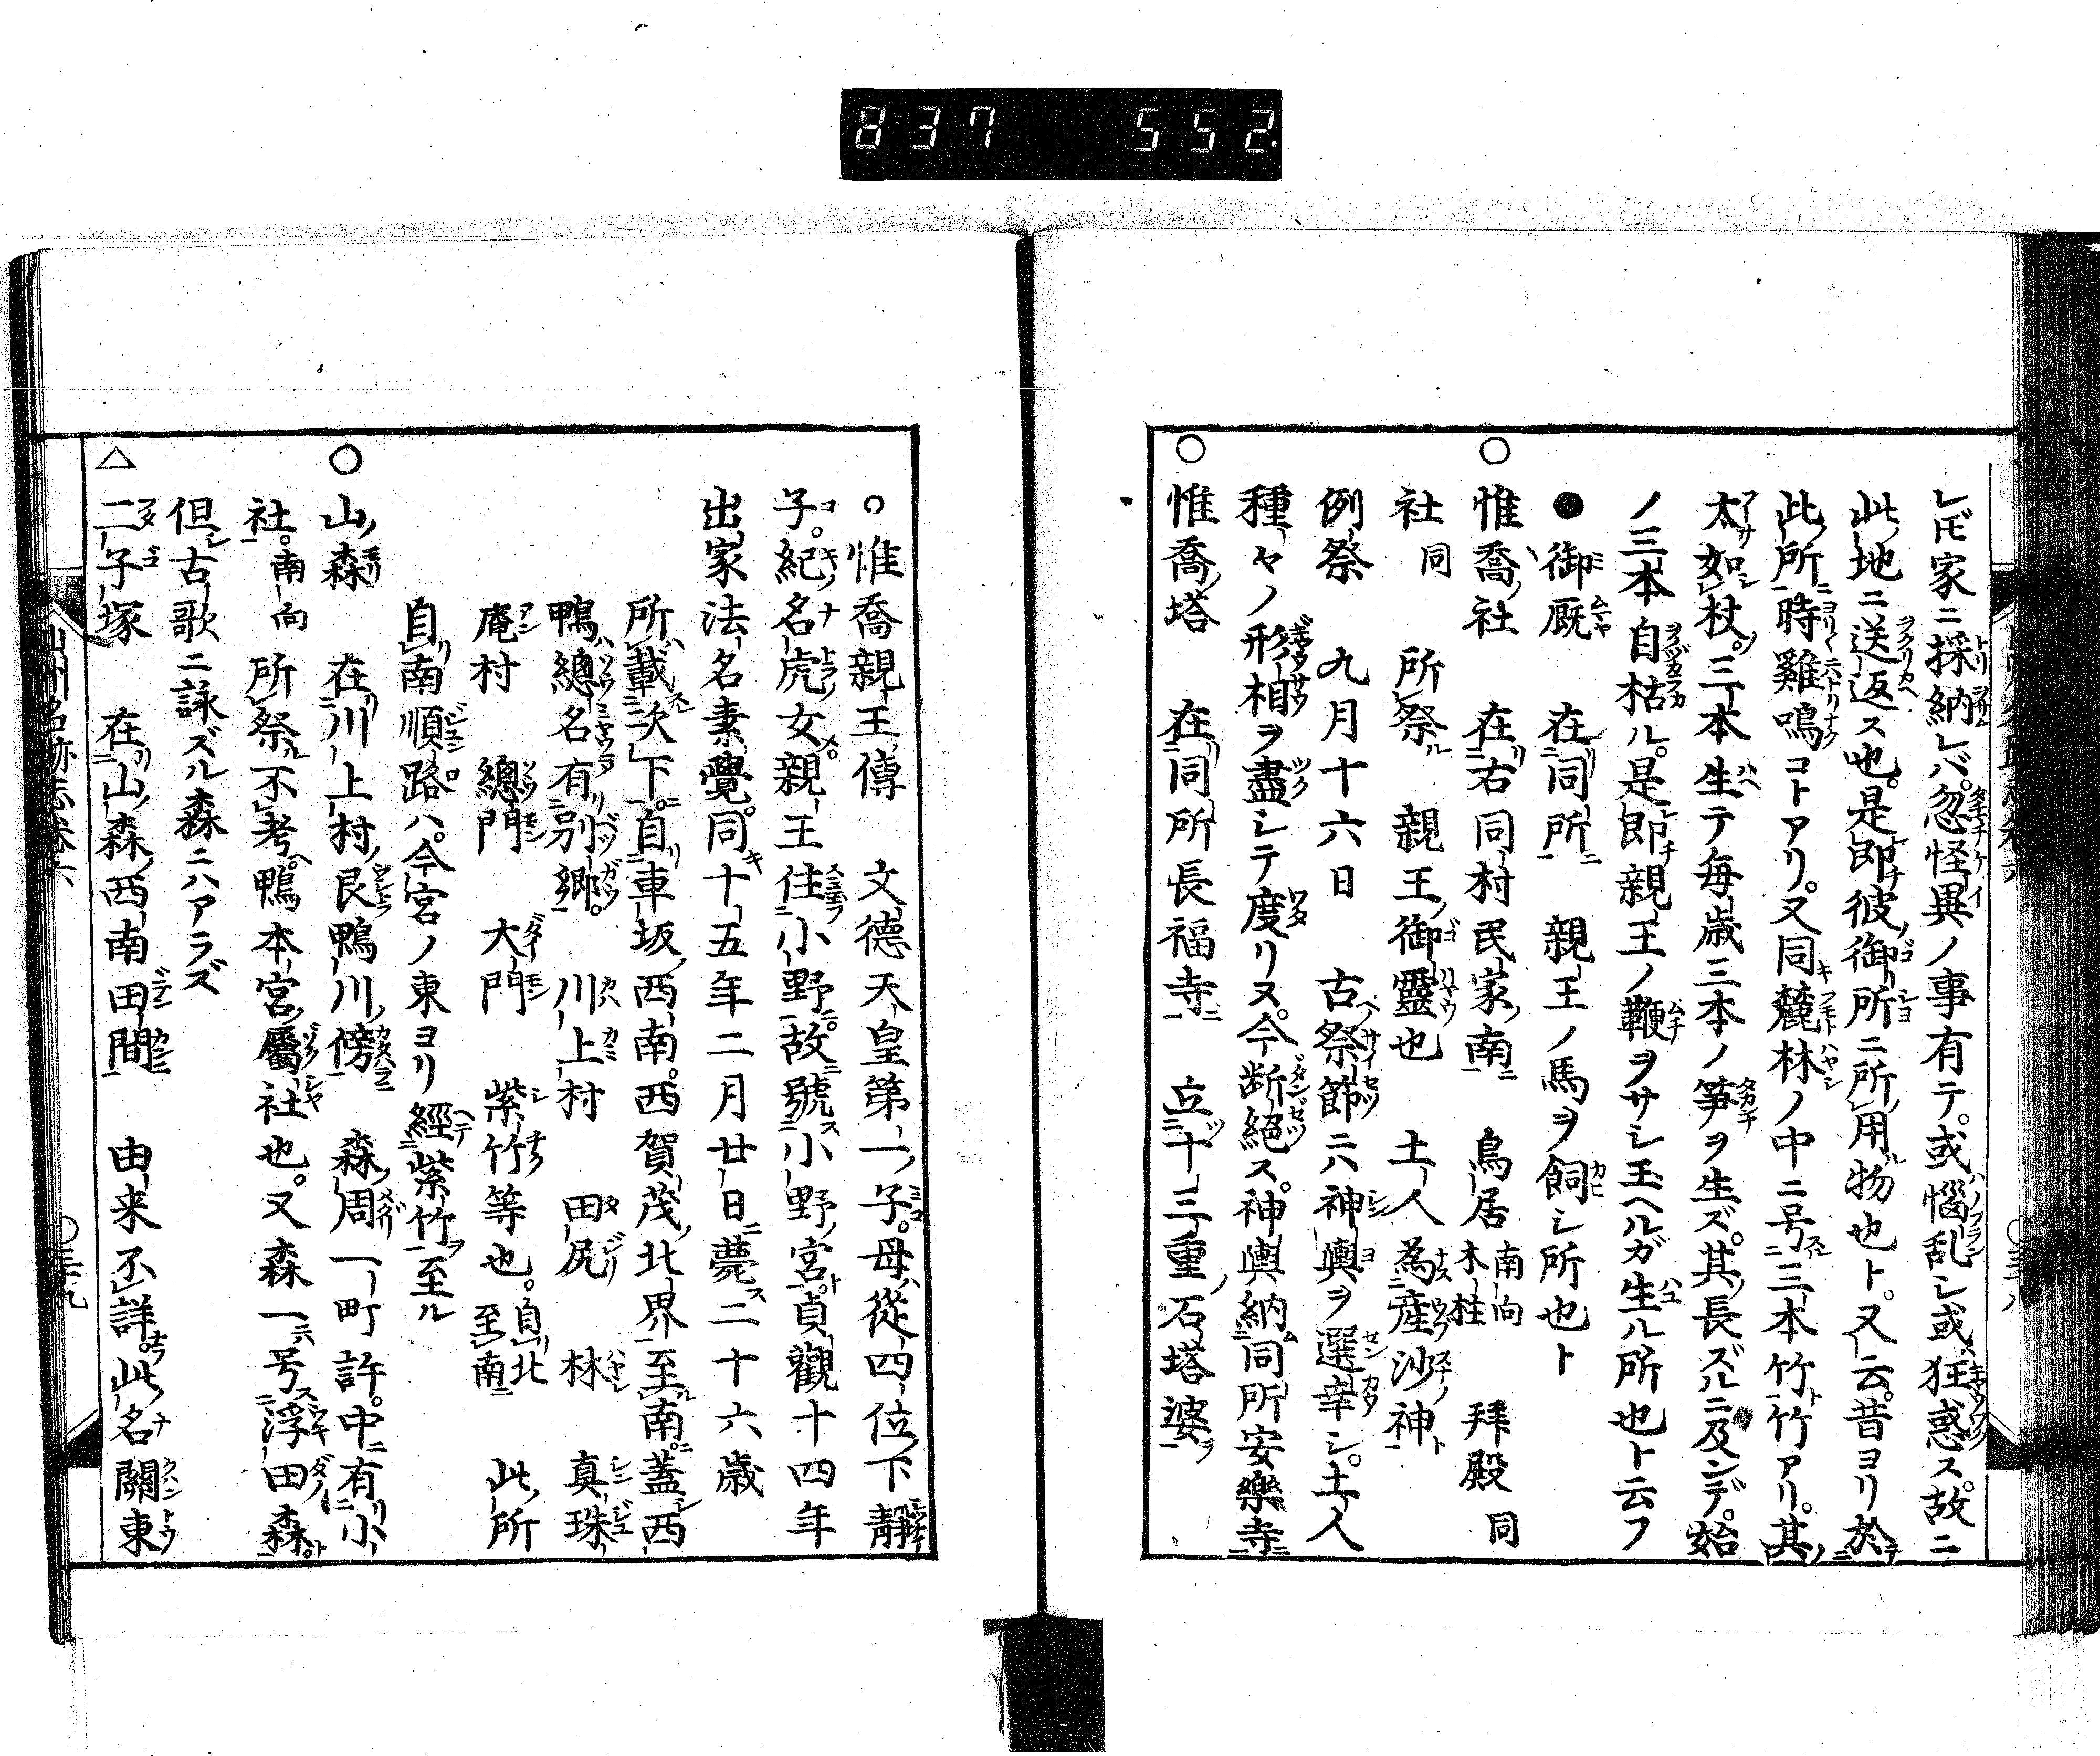 837 552.
レ𪜈家ニ採納レバ。忽怪異ノ事有テ。或惱乱シ或狂惑ス。故ニ
此地ニ送返ス也。是即彼御所ニ所用物也ト。又云。昔ヨリ於
此所時雞鳴コトアリ。又同麓林ノ中ニ号三本竹竹アリ。其
太如杖。三本生テ毎歳三本ノ笋ヲ生ズ。其長ズルニ及ンデ。始
ノ三本自枯ル。是即親王ノ鞭ヲサシ玉ヘルガ生ル所也ト云フ
●御厩 在同所 親王ノ馬ヲ飼シ所也ト
○惟喬社 在右同村民家南 鳥居 南向 木柱 拜殿 同
社 同 所祭 親王御靈也 土人為産沙神
例祭 九月十六日 古祭節ニハ神輿ヲ選幸シ。土人
種々ノ形相ヲ盡シテ度リヌ。今断絕ス。神輿納同所安樂寺
○惟喬塔 在同所長福寺 立十三重石塔婆
○惟喬親王傳 文德天皇第一子。母從四位下靜
子。紀名虎女。親王住小野。故號小野宮。貞觀十四年
出家法名素覺。同十五年二月廿日薨二十六歳
所載次下。自車坂西南。西賀茂北界至南。蓋西
鴨總名有別郷。 川上村 田尻 林 真珠
庵村 總門 大門 紫竹等也。自北至南 此所
自南順路ハ。今宮ノ東ヨリ經紫竹至ル
○山森 在川上村艮鴨川傍 森周一町許。中有小
社。南向 所祭不考。鴨本宮屬社也。又森一号浮田森。
但古歌ニ詠ズル森ニハアラズ
△二子塚 在山森西南田間 由来不詳。此名關東
山州名跡志卷六
○三十九
○三十八